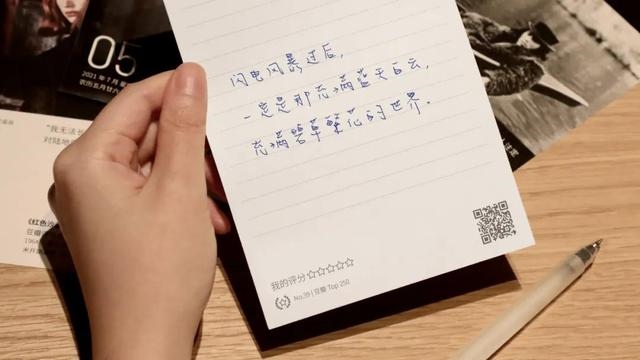 05
2021年7月
农历五月廿六
“我无法长
对陆地
《红色沙
豆瓣
1964
闪电风暴过后，
一定是那充满蓝天白云，
充满碧草繁花的世界.
我的评分☆☆☆☆☆
No.39 | 豆瓣 Top 250